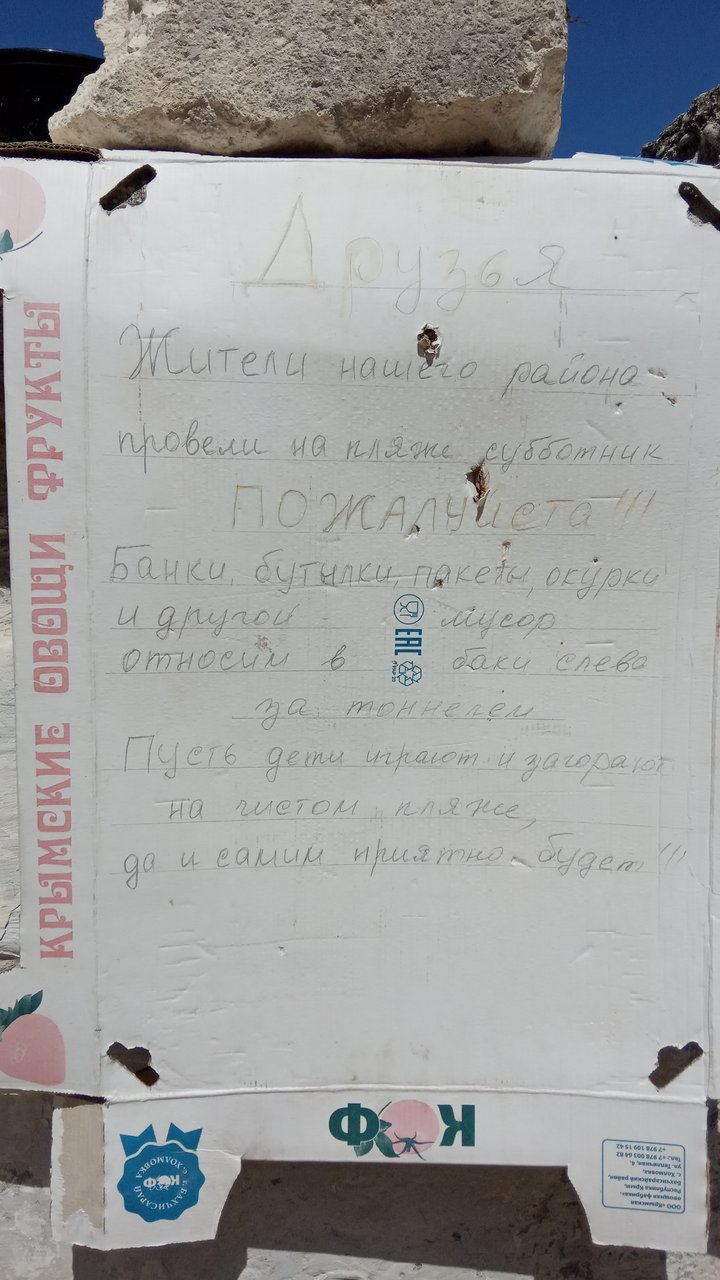 Друзья
Жители нашего района
провели на пляже субботник
ПОЖАЛУЙСТА!!!
Банки, бутылки, пакеты, окурки
и другой мусор
относим в баки слева
за тоннелем
Пусть дети играют и загорают
на чистом пляже,
да и самим приятно будет!!!
EAC
КРЫМСКИЕ ОВОЩИ ФРУКТЫ
КОФ
г. БАХЧИСАРАЙ с. ХОЛМОВКА
КОФ
ООО «Крымская
овощная фабрика»
Республика Крым,
Бахчисарайский район,
с. Холмовка,
ул. Тепличная, 6,
Тел.: +7 978 003 64 82
+7 978 109 15 42